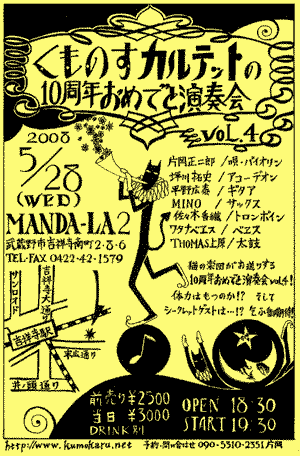 くものすカルテットの
10周年おめでと演奏会
VOL.4
2008
5/28
(WED)
MANDA-LA2
武蔵野市吉祥寺南町2-8-6
TEL・FAX 0422-42-1579
片岡正二郎/唄・バイオリン
坪川拓史/アコーデオン
平野広泰/ギタア
MINO/サックス
佐々木香織/トロンボイン
ワタナベエス/ベエス
THOMAS上原/太鼓
猫の楽団がお送りする
10周年おめでと演奏会vol.4!
体力はもつのか!? そして
シークレットゲストは…!?
サンロイド
吉祥寺大通り
吉祥寺駅
末広通り
井ノ頭通り
前売り ¥2500
当日 ¥3000
DRINK別
OPEN 18:30
START 19:30
http://www.kumokaru.net 予約・問い合せは 090-5310-2351 片岡